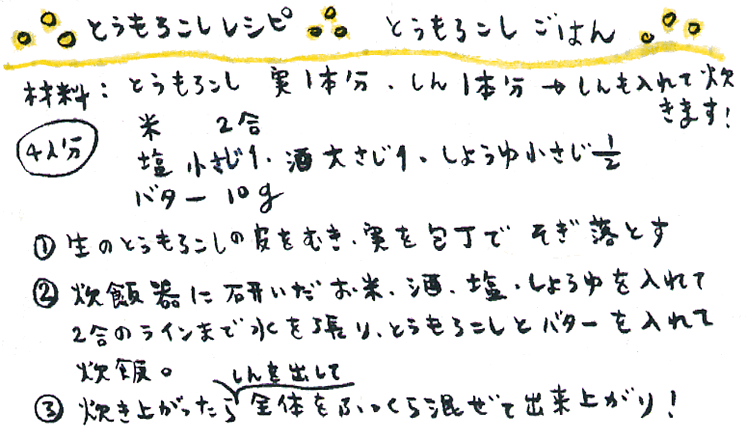 とうもろこしレシピ とうもろこしごはん
材料：とうもろこし 実1本分、しん1本分→しんも入れて炊きます！
4人分
米 2合
塩 小さじ1、酒 大さじ1、しょうゆ小さじ1/2
バター 10g
① 生のとうもろこしの皮をむき、実を包丁でそぎ落とす
② 炊飯器に研いだお米、酒、塩、しょうゆを入れて
2合のラインまで水を張り、とうもろこしとバターを入れて
炊飯。
しんを出して
③ 炊き上がったら全体をふっくら混ぜて出来上がり！